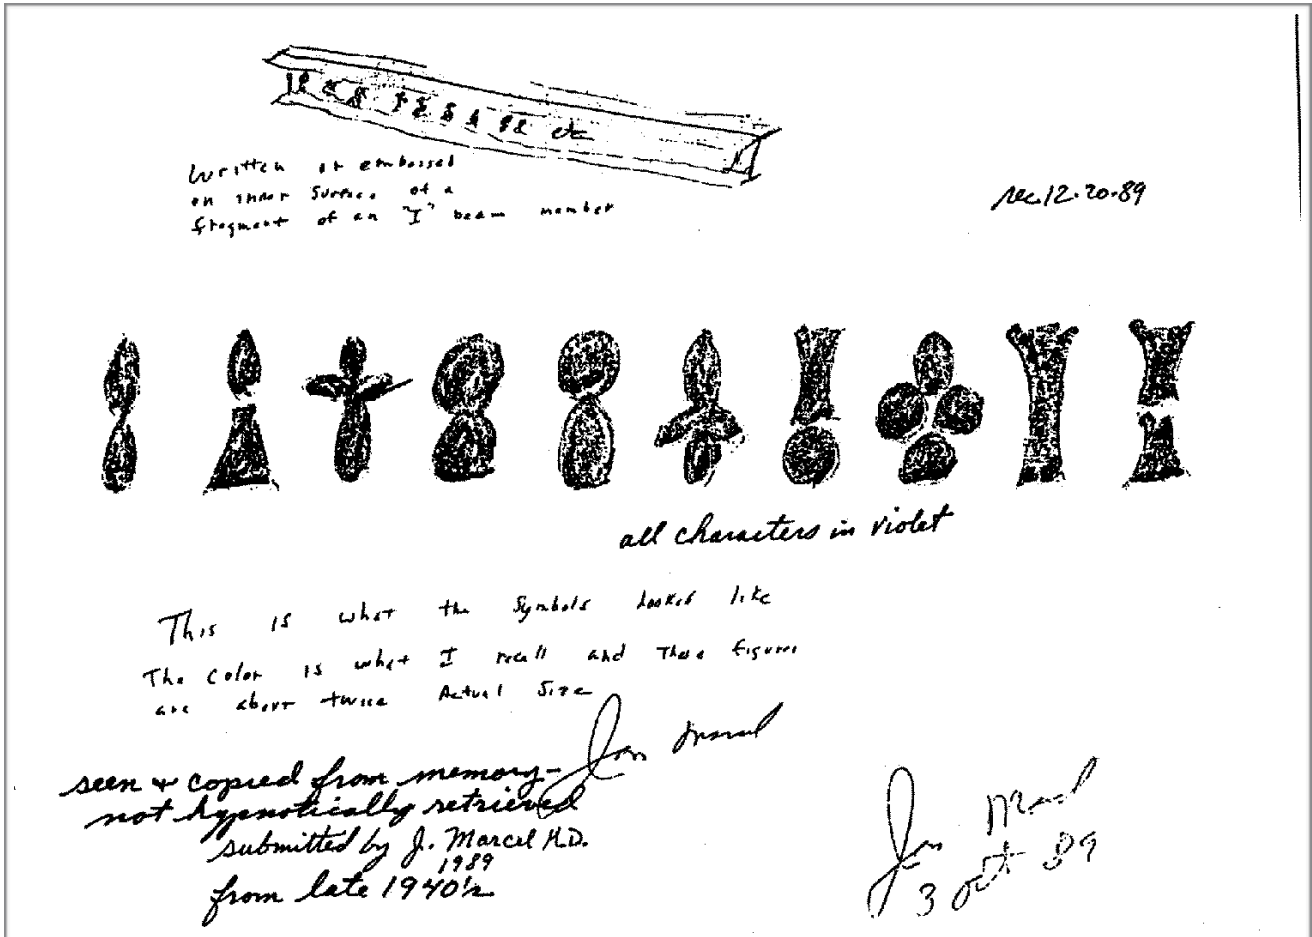 etc
Written or embossed
on inner Surface of a
fragment of an "I" beam member
rec 12-20-89
all characters in violet
This is what the Symbols looked like
The color is what I recall and These figures
are about twice Actual Size
Jon Marcel
seen + copied from memory-
not hypnotically retrieved
submitted by J. Marcel M.D.
1989
from late 1940's
Jon Marcel
3 oct 89